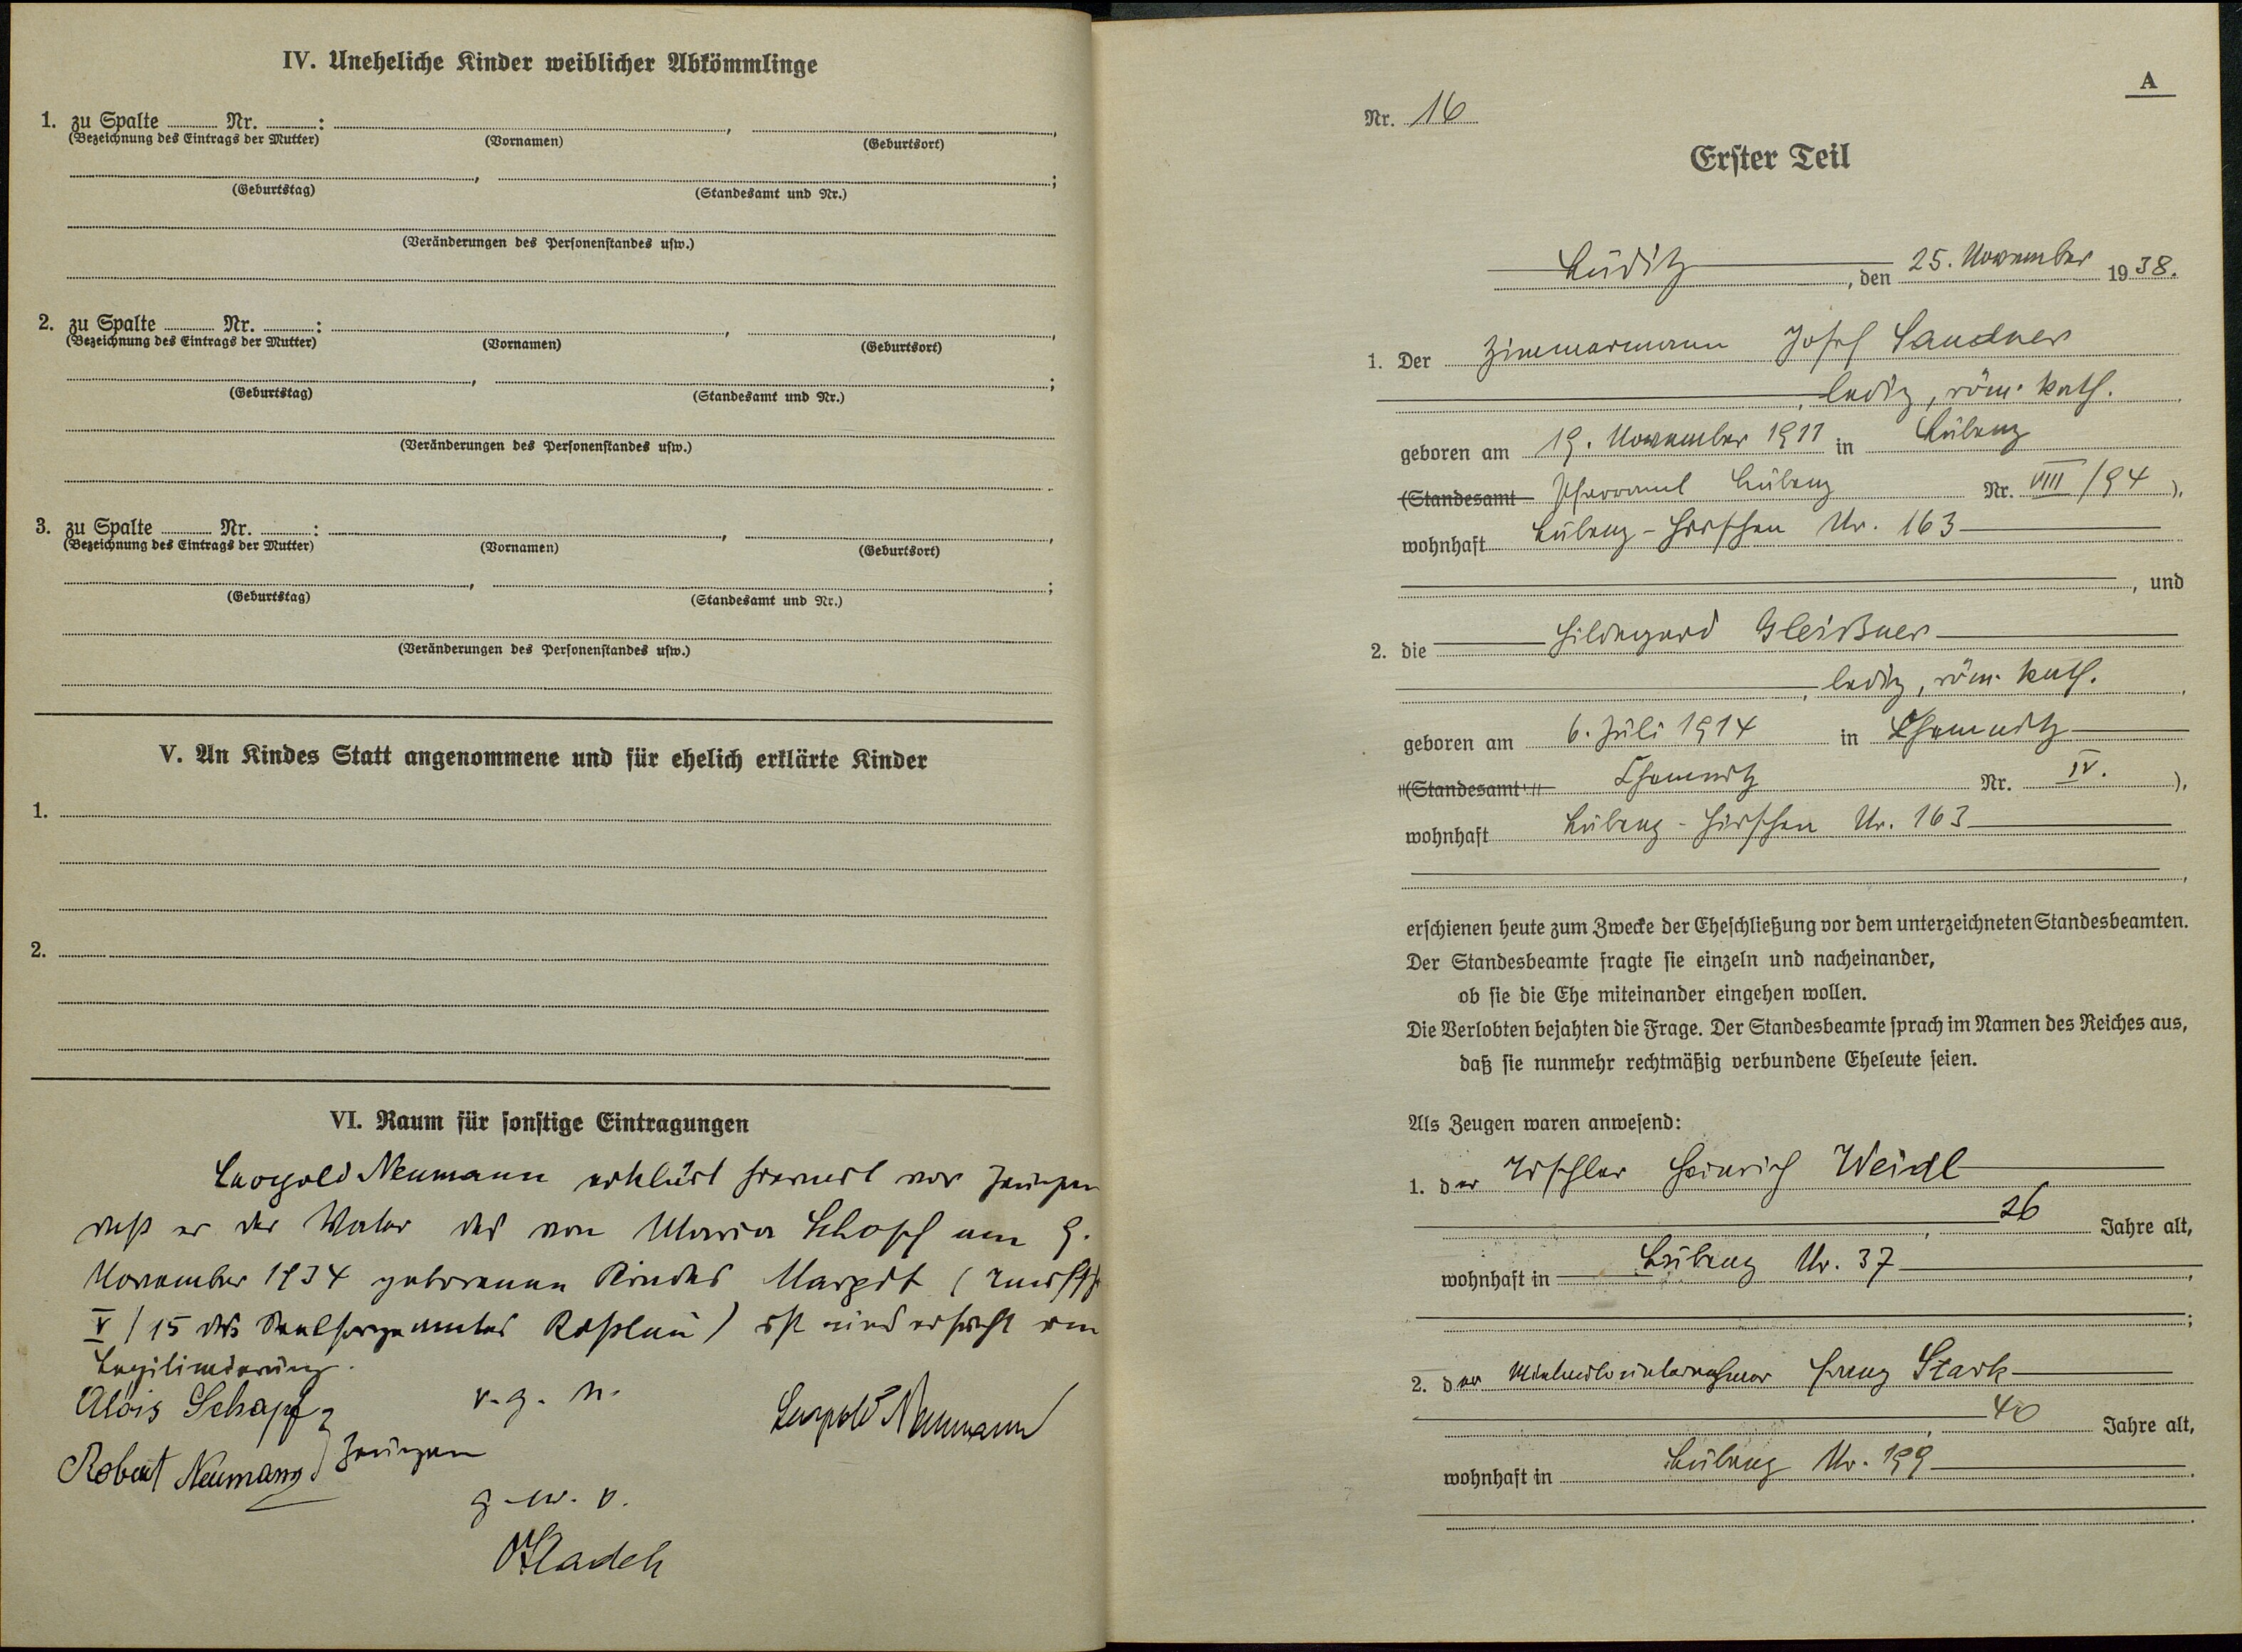 IV. Uneheliche Kinder weiblicher Abkömmlinge
1. zu Spalte Nr. : , ,
(Bezeichnung des Eintrags der Mutter) (Vornamen) (Geburtsort)
, ;
(Geburtstag) (Standesamt und Nr.)
(Veränderungen des Personenstandes usw.)
2. zu Spalte Nr. : , ,
(Bezeichnung des Eintrags der Mutter) (Vornamen) (Geburtsort)
, ;
(Geburtstag) (Standesamt und Nr.)
(Veränderungen des Personenstandes usw.)
3. zu Spalte Nr. : , ,
(Bezeichnung des Eintrags der Mutter) (Vornamen) (Geburtsort)
, ;
(Geburtstag) (Standesamt und Nr.)
(Veränderungen des Personenstandes usw.)
V. An Kindes Statt angenommene und für ehelich erklärte Kinder
1.
2.
VI. Raum für sonstige Eintragungen
Leopold Neumann erklärt hiermit vor Zeugen
daß er der Vater des von Maria Schopf am 9.
November 1934 geborenen Kindes Margit (
V / 15 des Seelsorgeamtes ) ist und ersucht um
Legitimierung.
Alois Schapf
v. g. u.
Leopold Neumann
Robert Neumann } Zeugen
g. w. o.
A
Nr. 16
Erster Teil
Luditz, den 25. November 1938.
1. Der Zimmermann Josef Sandner
, ledig, röm. kath.
geboren am 19. November 1911 in Lubenz
(Standesamt Pfarramt Lubenz Nr. VIII / 94 ),
wohnhaft Lubenz-Hirschen Nr. 163
, und
2. die Hildegard Gleißner
, ledig, röm. kath.
geboren am 6. Juli 1914 in Chemnitz
(Standesamt Chemnitz Nr. IV. ),
wohnhaft Lubenz-Hirschen Nr. 163
,
erschienen heute zum Zwecke der Eheschließung vor dem unterzeichneten Standesbeamten.
Der Standesbeamte fragte sie einzeln und nacheinander,
ob sie die Ehe miteinander eingehen wollen.
Die Verlobten bejahten die Frage. Der Standesbeamte sprach im Namen des Reiches aus,
daß sie nunmehr rechtmäßig verbundene Eheleute seien.
Als Zeugen waren anwesend:
1. der Tischler Heinrich Weidl
, 26 Jahre alt,
wohnhaft in Lubenz Nr. 37,
;
2. der Mietautounternehmer Franz Stark
, 40 Jahre alt,
wohnhaft in Lubenz Nr. 199.